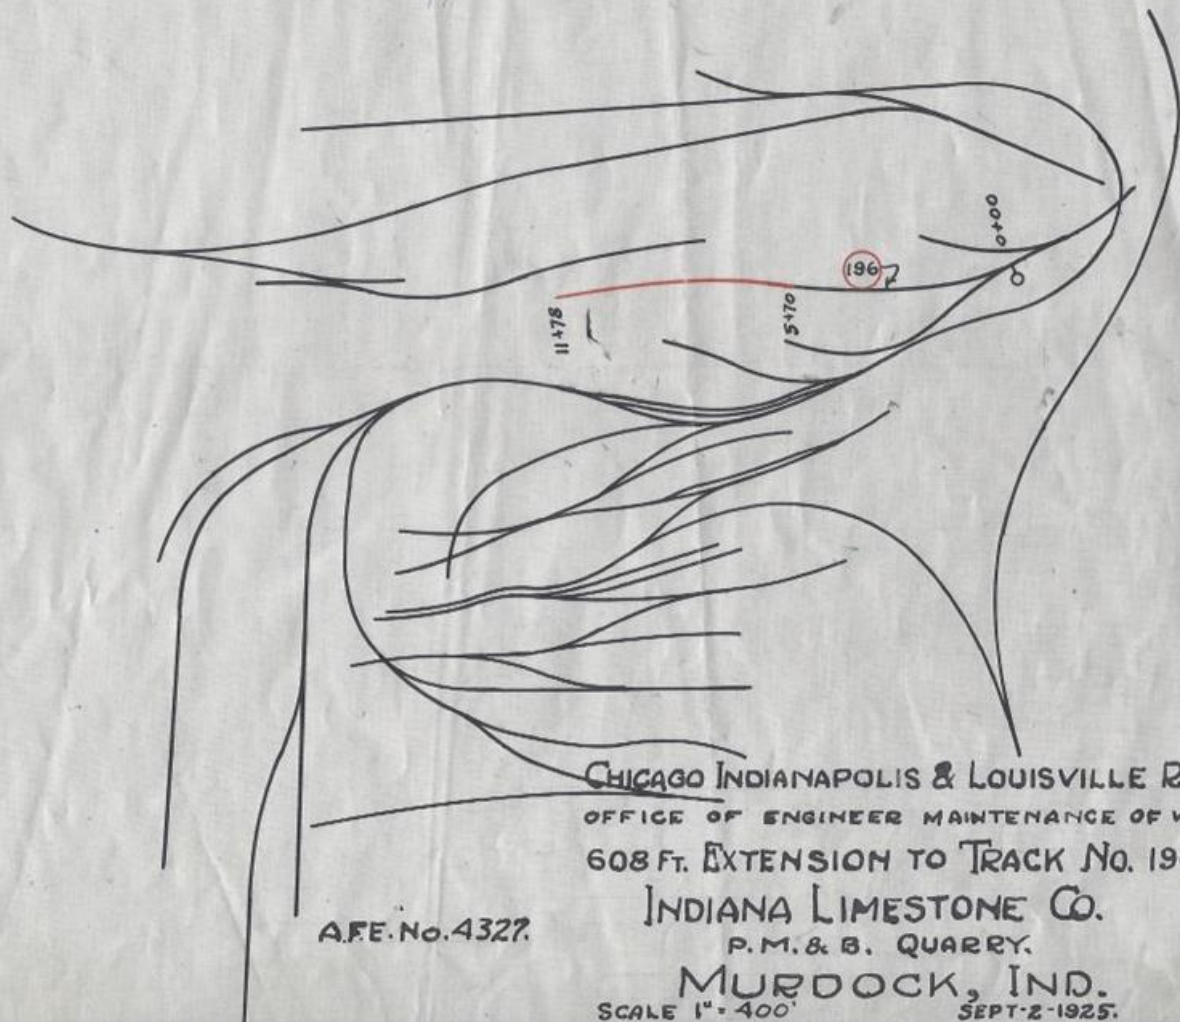 0+00
196
5+70
11+78
CHICAGO INDIANAPOLIS & LOUISVILLE R
OFFICE OF ENGINEER MAINTENANCE OF
608 FT. EXTENSION TO TRACK NO. 19
INDIANA LIMESTONE CO.
A.F.E. NO. 4327.
P. M. & B. QUARRY.
MURDOCK, IND.
SCALE 1" = 400' SEPT-2-1925.